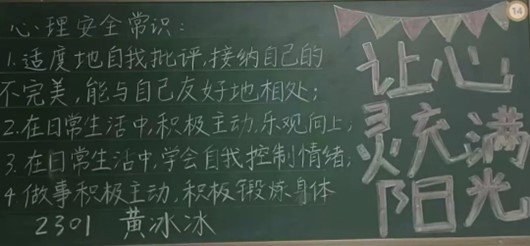 心理安全常识：
1.适度地自我批评,接纳自己的
不完美,能与自己友好地相处；
2.在日常生活中,积极主动.乐观向上；
3.在日常生活中,学会自我控制情绪；
4.做事积极主动,积极锻炼身体
2301 黄冰冰
让心
灵充满
阳光
14